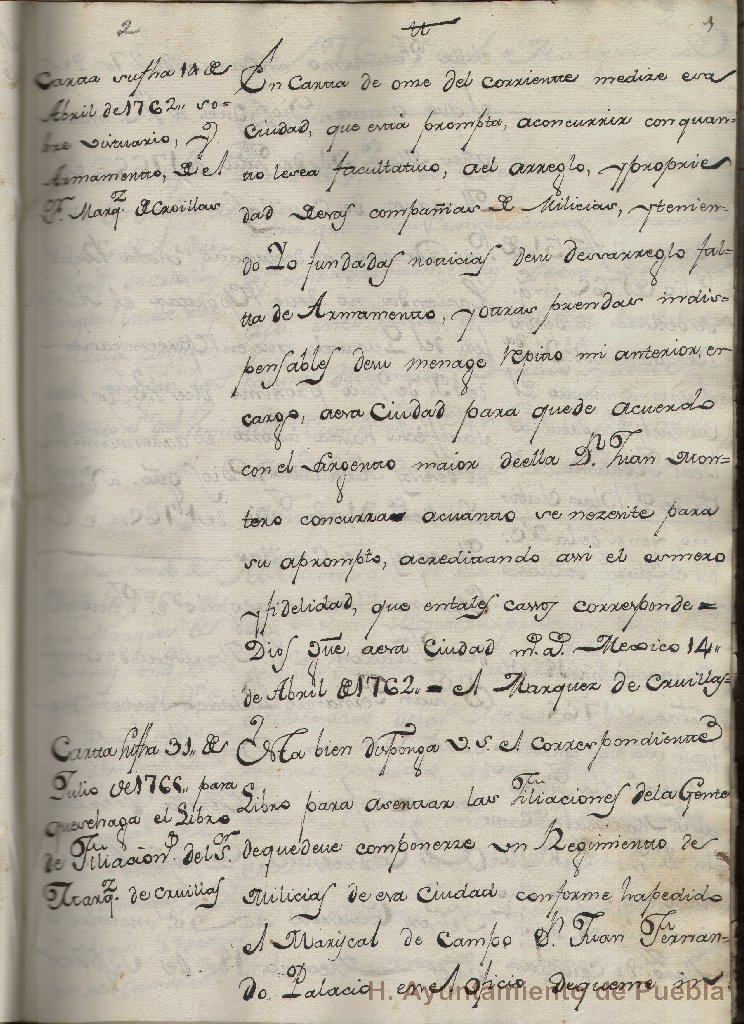 2
4
Carta su fha 14 de
Abril de 1762,, so=
bre vistuario, y
Armamento, de el
S. Marq.z de Croillas
En Carta de onse del corriente medize esa
Ciudad, que está prompta, aconcurrir con quan=
to lesea facultativo, ael arreglo, y proprie
dad deesas compañias de Milicias, y tenien=
do Yo fundadas noticias desu desarreglo fal=
ta de Armamento, y otras prendas indis=
pensables desu menage repito mi anterior, en
cargo, aesa Ciudad para quede acuerdo
con el Sargento maior deella D.n Juan Mon=
tero concurra acuanto se nezesite para
su aprompto, acreditando assi el esmero
y fidelidad, que entales cassos corresponde=
Dios gue, aesa Ciudad m.s a.s Mexico 14,,
de Abril de 1762,,= el Marquez de Cruillas=
Carta su fha 31,, de
Julio de 1766,, para
quesehaga el Libro
de Filiacion.s del S.r
Marq.z de Cruillas
Esta bien disponga V.S. el correspondiente
Libro para asentar las Filiaciones dela Gente
dequedeve componerze un Regimiento de
Milicias de esa Ciudad conforme hapedido
el Mariscal de Campo D.n Juan Fernan=
do Palacio en el oficio dequeme in
H. Ayuntamiento de Puebla